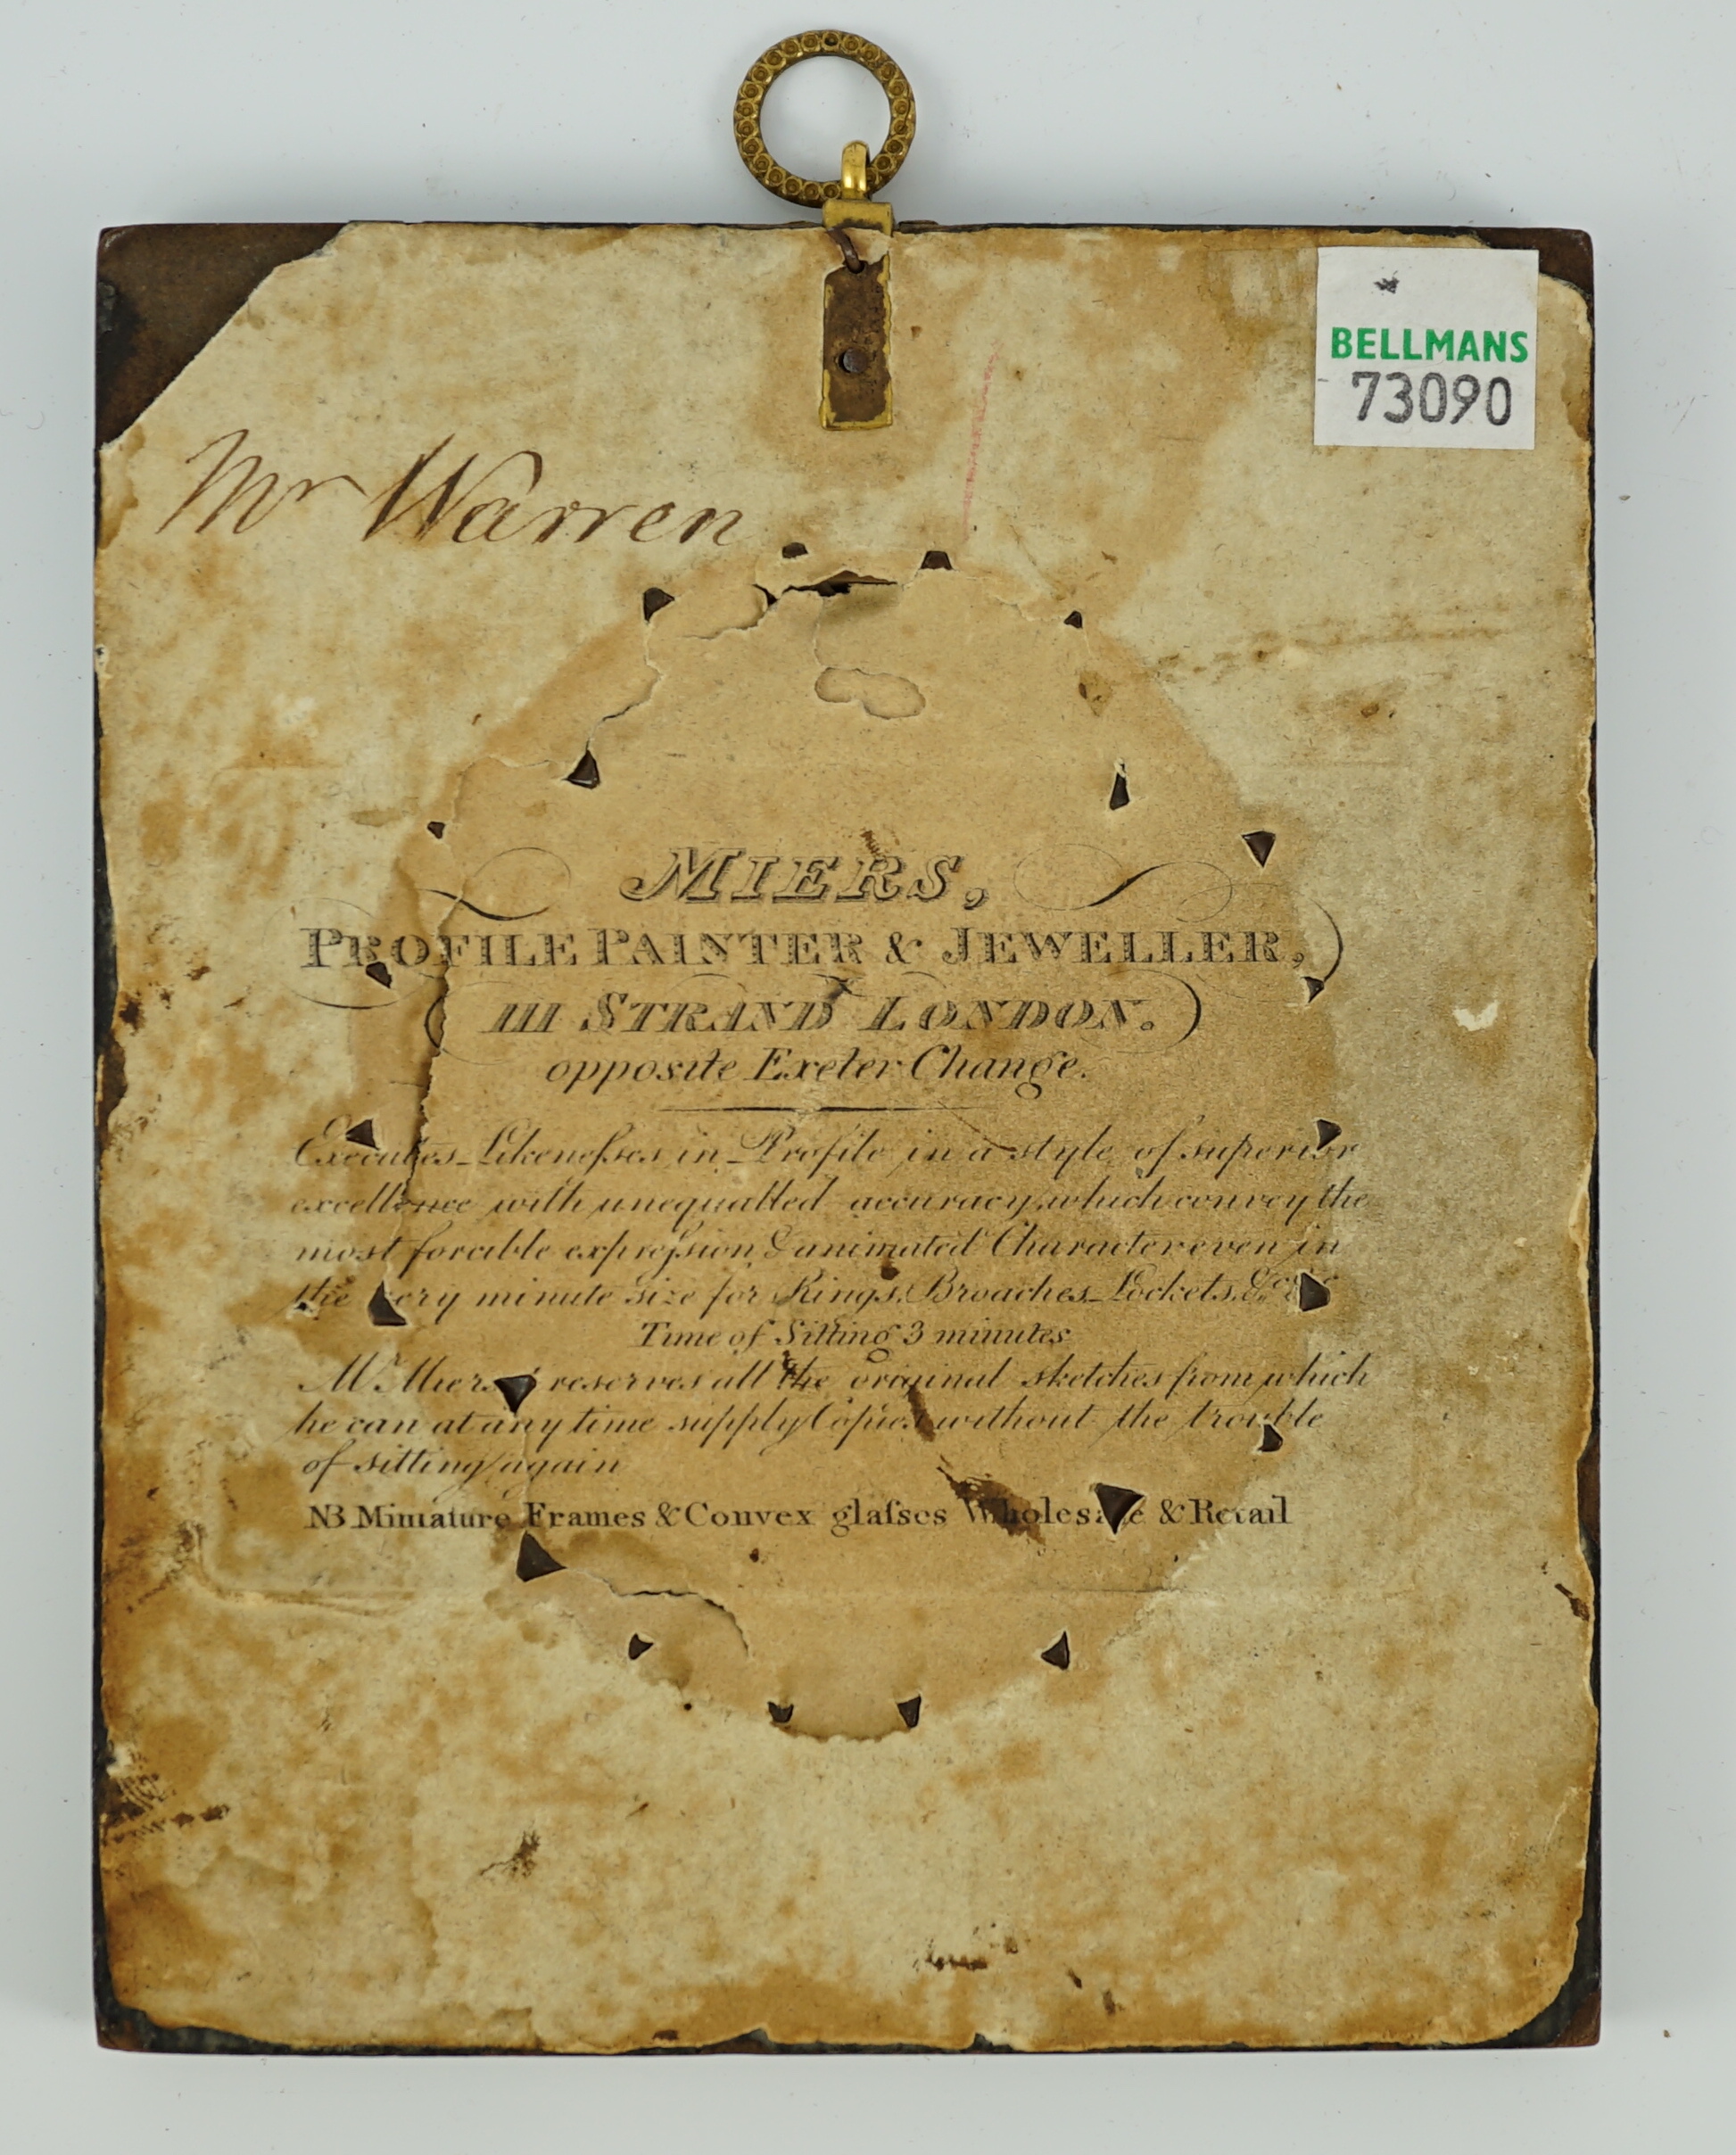 BELLMANS
73090
Mr Warren
MIERS,
PROFILE PAINTER & JEWELLER,
111 STRAND LONDON.
opposite Exeter Change.
Executes Likeneſses in Profile in a style of superior
excellence with unequalled accuracy, which convey the
most forcible expreſsion & animated Character even in
the very minute size for Rings, Broaches, Lockets, &c &c
Time of Sitting 3 minutes
Mr. Miers reserves all the original sketches from which
he can at any time supply Copies without the trouble
of sitting again
NB Miniature Frames & Convex glaſses Wholesale & Retail